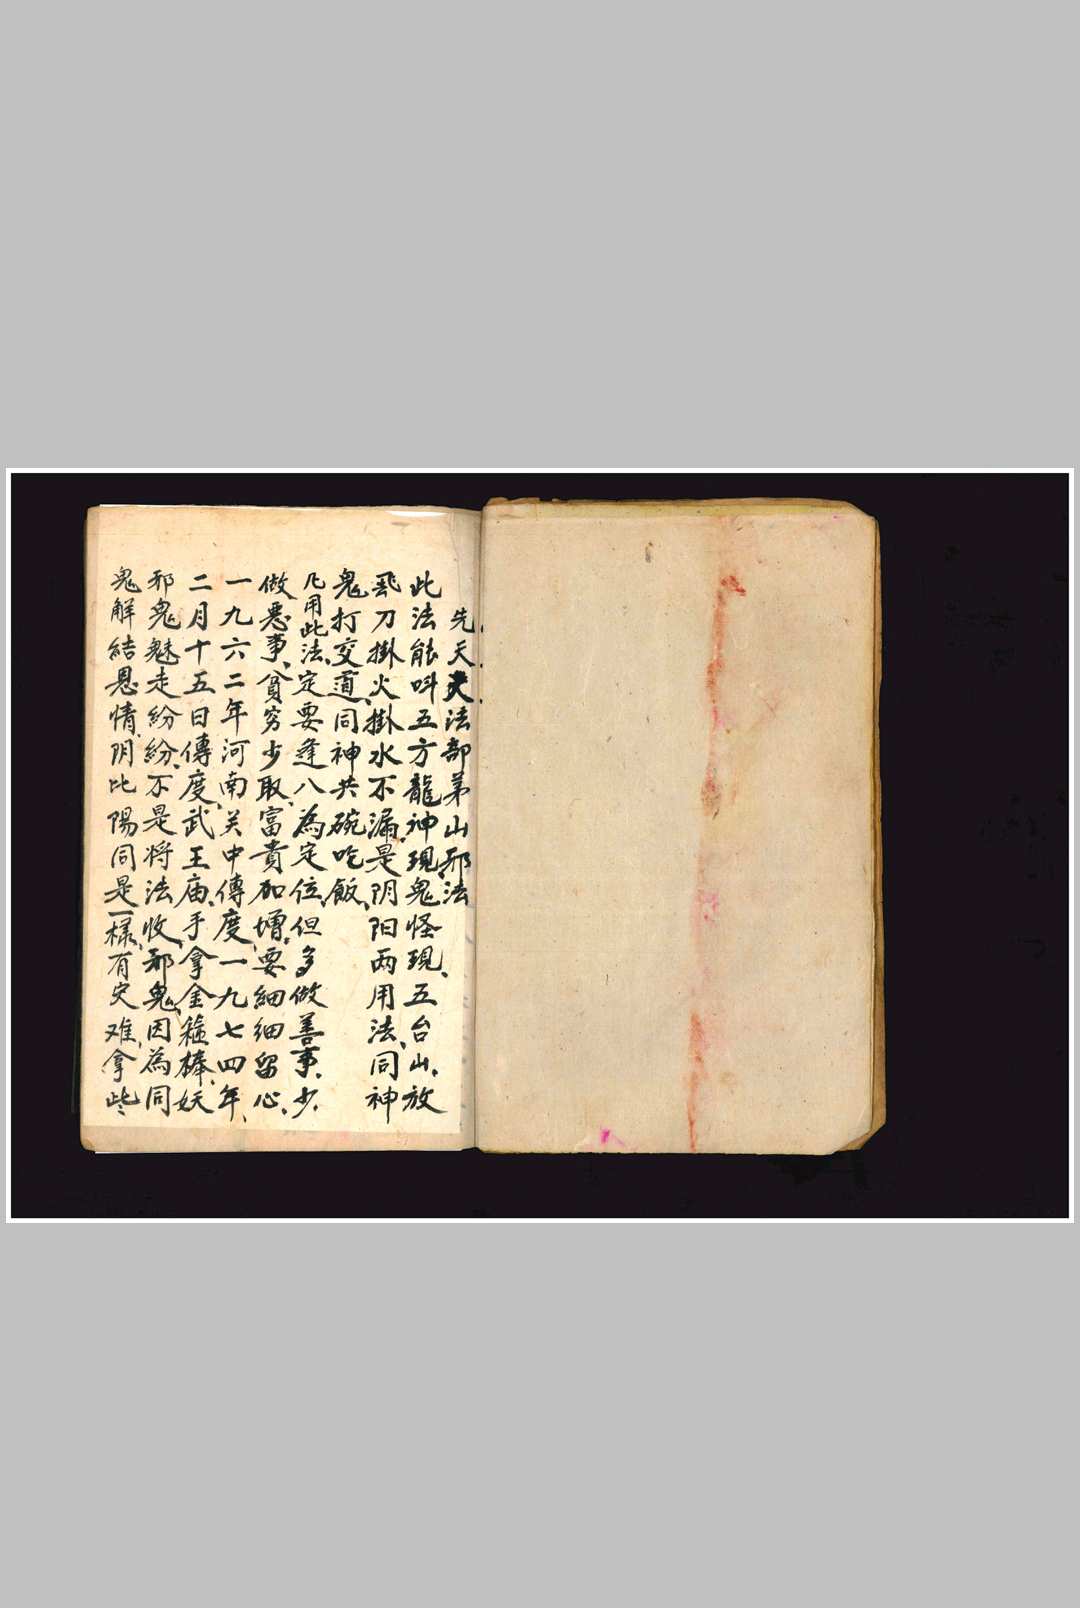 先天大法部茅山邪法
此法能叫五方龍神現鬼怪現、五台山、放
飛刀掛火、掛水不漏、是阴阳两用法、同神
鬼打交道、同神共碗吃飯、
凡用此法、定要逢八為定位、但多做善事、少
做悪事、貧穷少取、富貴加增、要細細留心、
一九六二年河南关中傳度、一九七四年、
二月十五日傳度、武王庙、手拿金箍棒、妖
邪鬼魅走紛紛、不是将法收、邪鬼、因為同
鬼解結恩情、阴比陽同是一様、有灾难、拿些